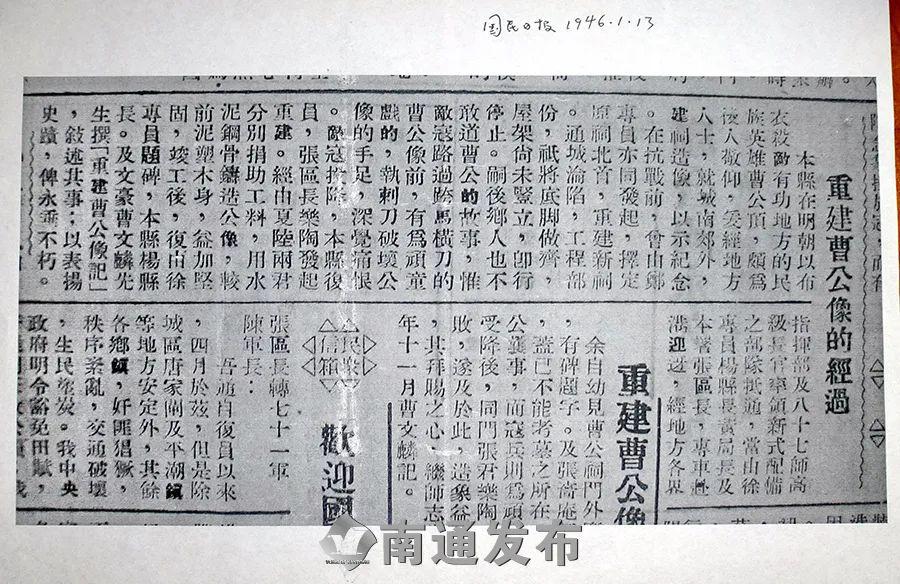 国民日报 1946.1.13
重建曹公像的經過
本縣在明朝以布
衣殺敵有功地方的民
族英雄曹公頂，頗爲
後人敬仰，爰經地方
人士，就城南郊外，
建祠造像，以示紀念
。在抗戰前，會由鄭
專員亦同發起，擇定
原祠北首，重建新祠
。通城淪陷，工程部
份，祇將底脚做齊，
屋架尙未豎立，卽行
停止。嗣後鄉人也不
敢道曹公的故事，惟
敵寇路過跨馬橫刀的
曹公像前，有爲頑童
戲的，執刺刀破壞公
像的手足，深覺痛恨
。敵寇投降，本縣復
員，張區長樂陶發起
重建。經由夏陸兩君
分別捐助工料，用水
泥鋼骨鑄造公像，較
前泥塑木身，益加堅
固，竣工後，復由徐
專員題碑，本縣楊縣
長。及文豪曹文麟先
生撰「重建曹公像記」
，敍述其事；以表揚
史蹟，俾永垂不朽。
指揮部及八十七師高
級兵官率領新式配備
之部隊抵通，當由徐
專員楊縣長黃局長及
本署張區長，專車赴
港迎迓，經地方各界
重建曹公像
余自幼見曹公祠門外
有碑題字。及張嗇庵
蓋已不能考墓之所在
公襄事，而寇兵則爲頑
受降後，同門張君樂陶
敗，遂及於此，造象益
，其拜賜之心，繼師志
年十一月曹文麟記。
民眾
信箱
歡迎國
張區長轉七十一軍
陳軍長：
吾通自復員以來
，四月於茲，但是除
城區唐家閘及平潮鎮
等地方安定外，其餘
各鄉鎮，奸匪猖獗，
秩序紊亂，交通破壞
，生民塗炭。我中央
政府明令豁免田賦，
南通发布